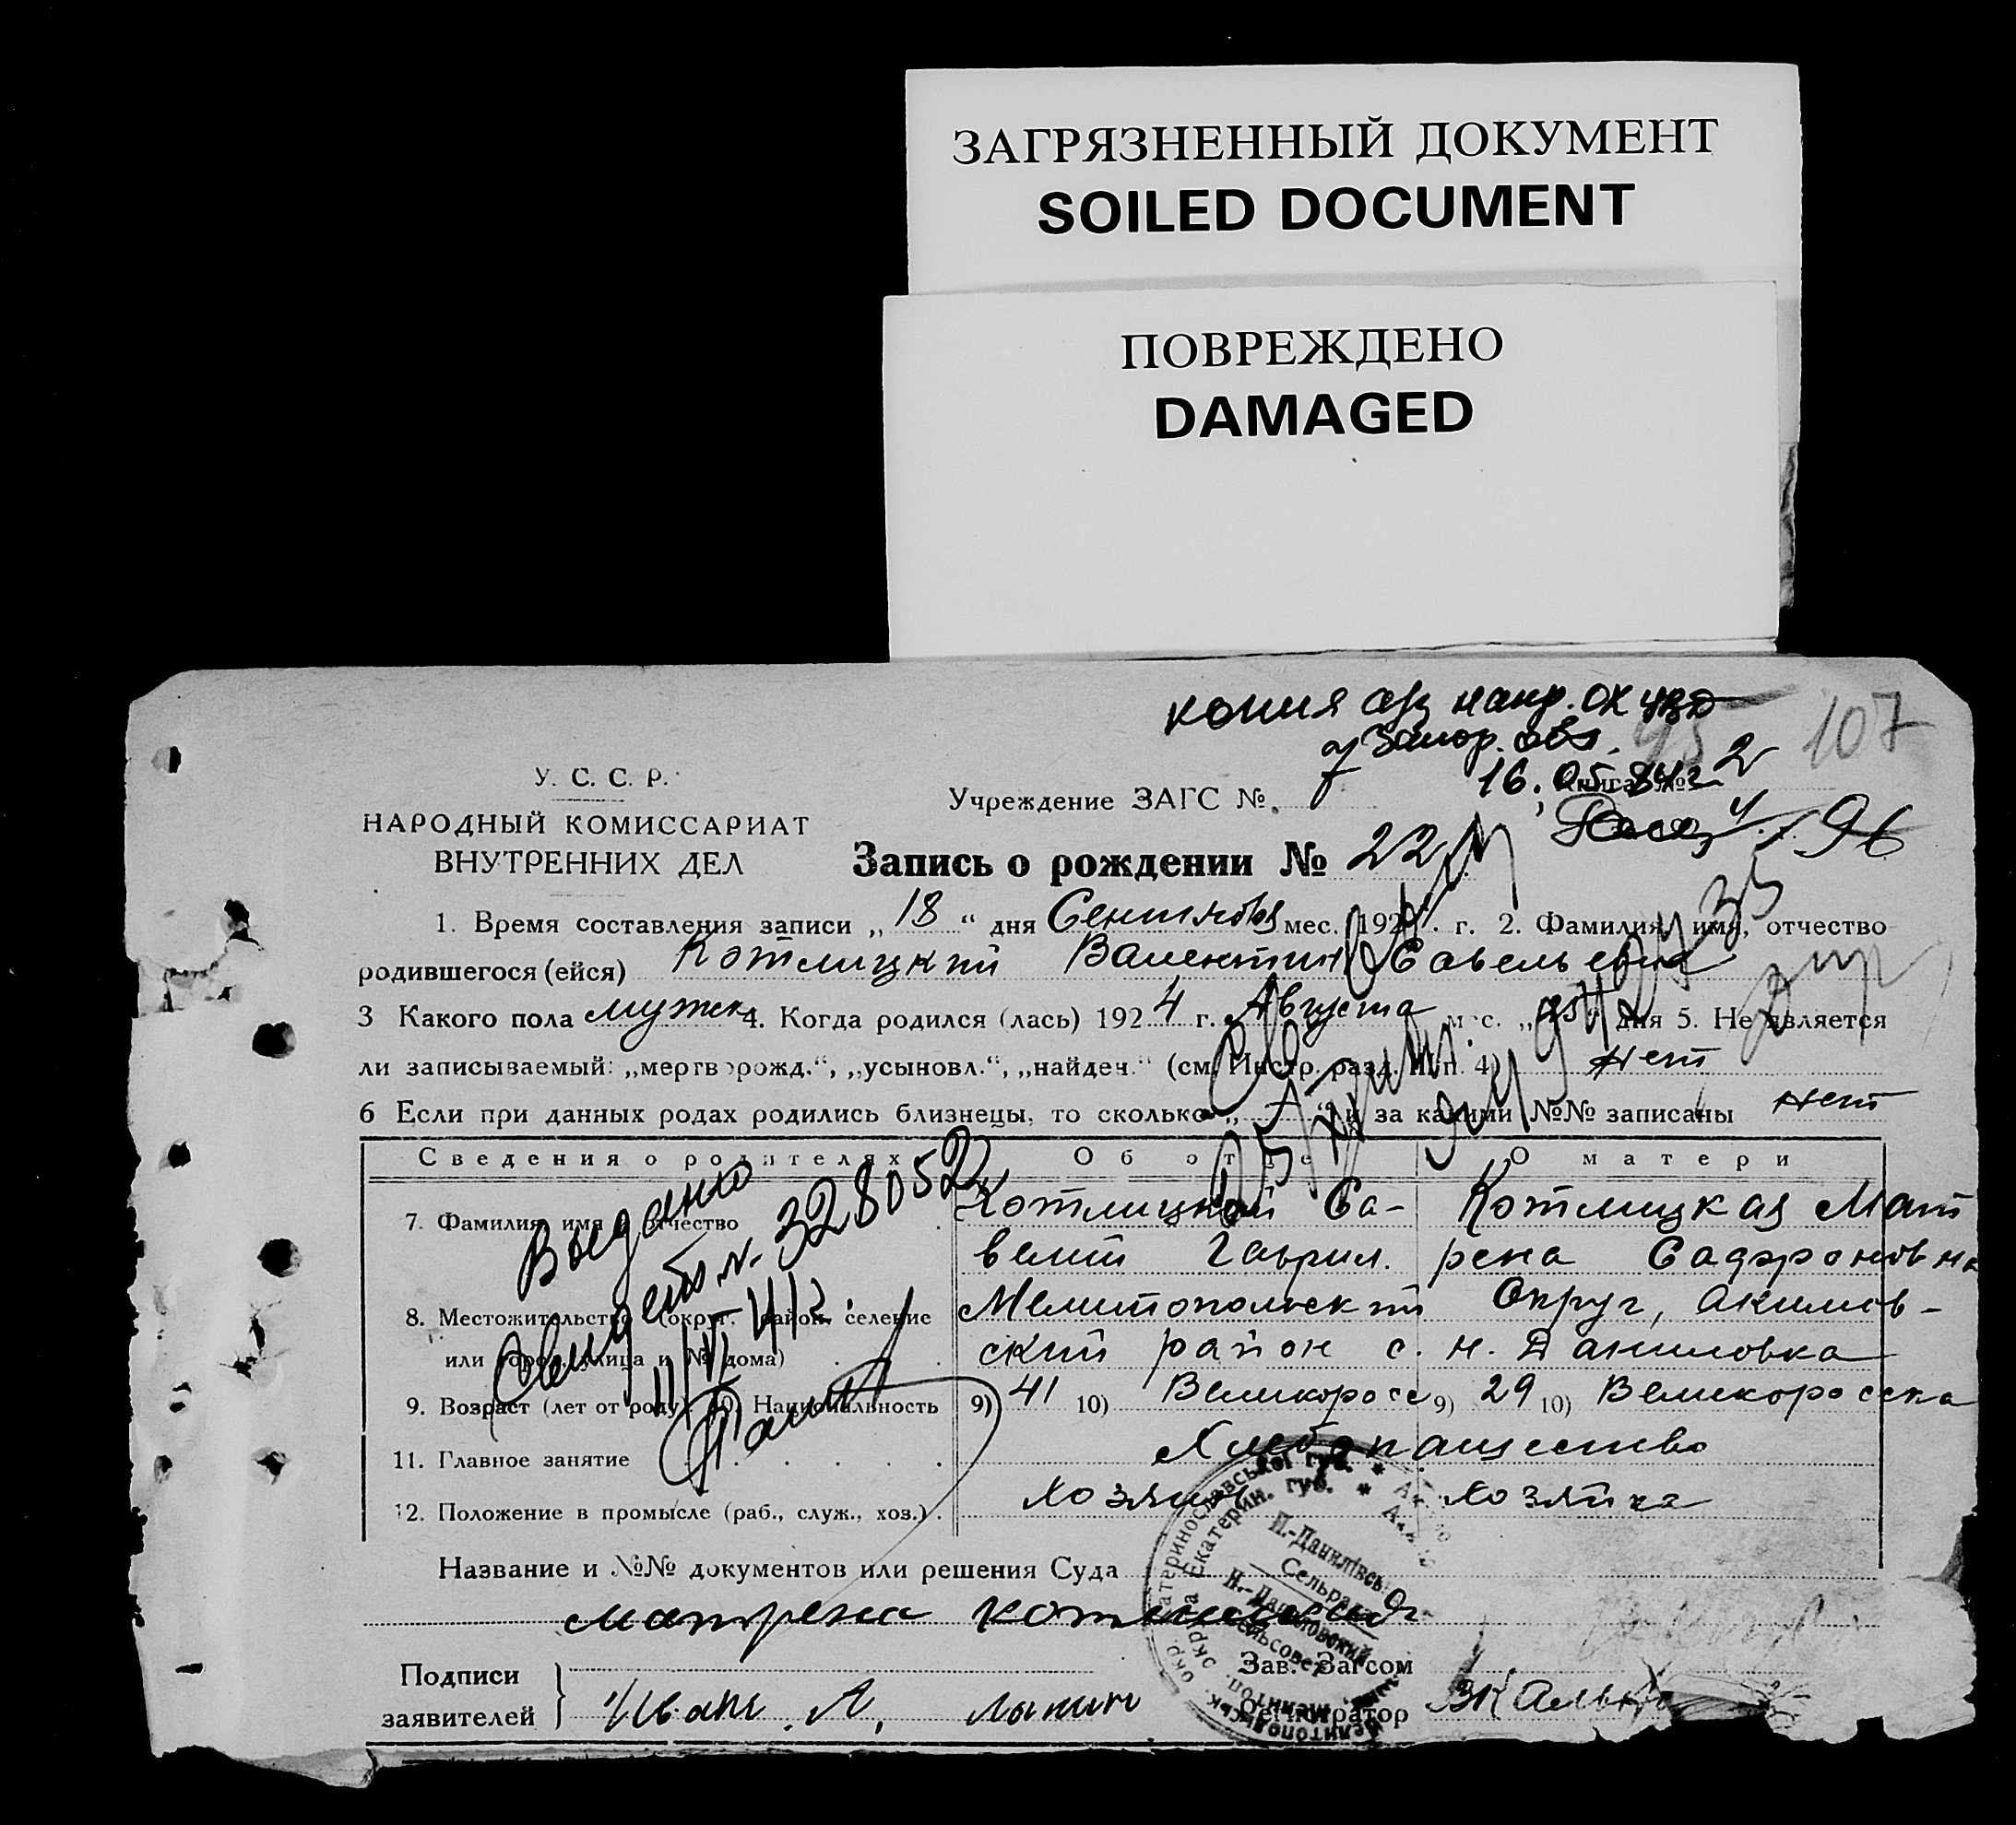 ЗАГРЯЗНЕННЫЙ ДОКУМЕНТ
SOILED DOCUMENT
ПОВРЕЖДЕНО
DAMAGED
копия а/з напр. ОК УВД
Запор. обл.
107
95
2
16.05.84г
96
У. С. С. Р.
НАРОДНЫЙ КОМИССАРИАТ
ВНУТРЕННИХ ДЕЛ
Учреждение ЗАГС №
Книга №
Запись о рождении № 22
1. Время составления записи „18“ дня Сентября мес. 1924 г. 2. Фамилия, имя, отчество
родившегося (ейся) Котлицкий Валентин Савельевич
3 Какого пола мужск 4. Когда родился (лась) 1924 г. Августа мес. „25“ дня 5. Не является
ли записываемый: „мертворожд.“, „усыновл.“, „найдеч.“ (см. Инстр. разд. II п. 4) нет
6 Если при данных родах родились близнецы, то сколько „ “ и за какими №№ записаны нет
Сведения о родителях Об отце О матери
7. Фамилия, имя и отчество Котлицкий Са- Котлицкая Мат
велий Гаврил. рена Сафроновна
8. Местожительство (округ. район, селение Мелитопольский Округ, Акимов-
или город, улица и № дома) ский район с. н. Даниловка
9. Возраст (лет от роду) 10. Национальность 9) 41 10) Великоросс 9) 29 10) Великоросска
11. Главное занятие Хлебопашество
12. Положение в промысле (раб., служ., хоз.) хозяин хозяйка
Выдано
Свидет. № 328052
Название и №№ документов или решения Суда
Матрена Котлицкая
Подписи
заявителей
Иван Л. Лапин
Зав. Загсом
Регистратор
Н.-Данилівсь.
Сельрада
Н.-Даниловский
Сельсовет